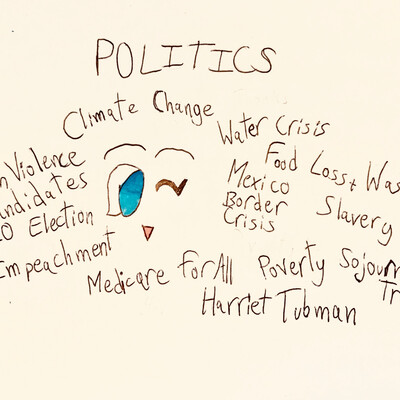 POLITICS
Climate Change
Water Crisis
n Violence
andidates
20 Election
Impeachment
Food Loss + Was
Mexico
Border
Crisis
Slavery
Medicare for All
Poverty
Sojourn
Tr
Harriet Tubman